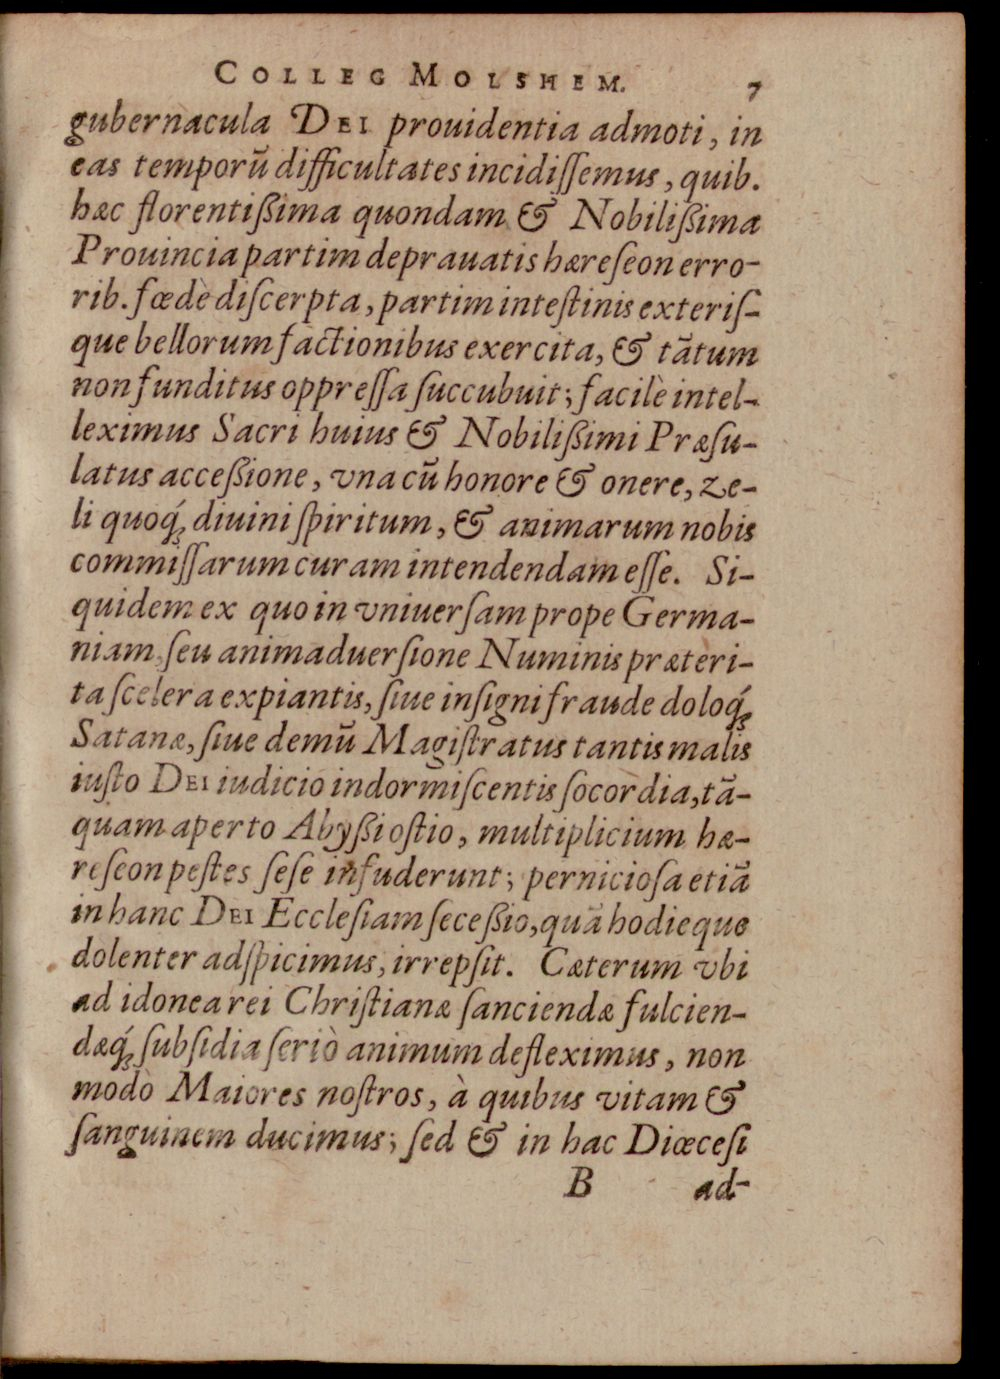 COLLEG MOLSHEM. 7
gubernacula DEI prouidentia admoti, in
eas temporū difficultates incidiſſemus, quib.
hæc florentißima quondam & Nobilißima
Prouincia partim deprauatis hæreſeon erro-
rib. fœdè diſcerpta, partim inteſtinis exteriſ-
que bellorum factionibus exercita, & tātum
non funditus oppreſſa ſuccubuit; facilè intel-
leximus Sacri huius & Nobilißimi Præſu-
latus acceßione, vna cū honore & onere, ze-
li quoq́; diuini ſpiritum, & animarum nobis
commiſſarum curam intendendam eſſe. Si-
quidem ex quo in vniuerſam prope Germa-
niam, ſeu animaduerſione Numinis præteri-
ta ſcelera expiantis, ſiue inſigni fraude doloq́;
Satanæ, ſiue demū Magiſtratus tantis malis
iuſto DEI iudicio indormiſcentis ſocordia, tā-
quam aperto Abyßi oſtio, multiplicium hæ-
reſeon peſtes ſeſe infuderunt; pernicioſa etiā
in hanc DEI Eccleſiam ſeceßio, quā hodieque
dolenter adſpicimus, irrepſit. Cæterum vbi
ad idonea rei Chriſtianæ ſanciendæ fulcien-
dæq́; ſubſidia ſeriò animum defleximus, non
modò Maiores noſtros, à quibus vitam &
ſanguinem ducimus; ſed & in hac Diœceſi
B ad-